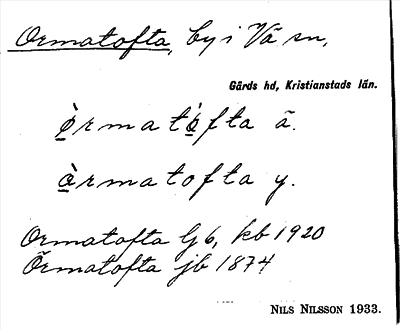 Ormatofta, by i Vä sn,
Gärds hd, Kristianstads län.
ò̱rmatò̱fta ä.
ò̱rmatofta y.
Ormatofta Gj 6, kb 1920
Örmatofta jb 1874
NILS NILSSON 1933.